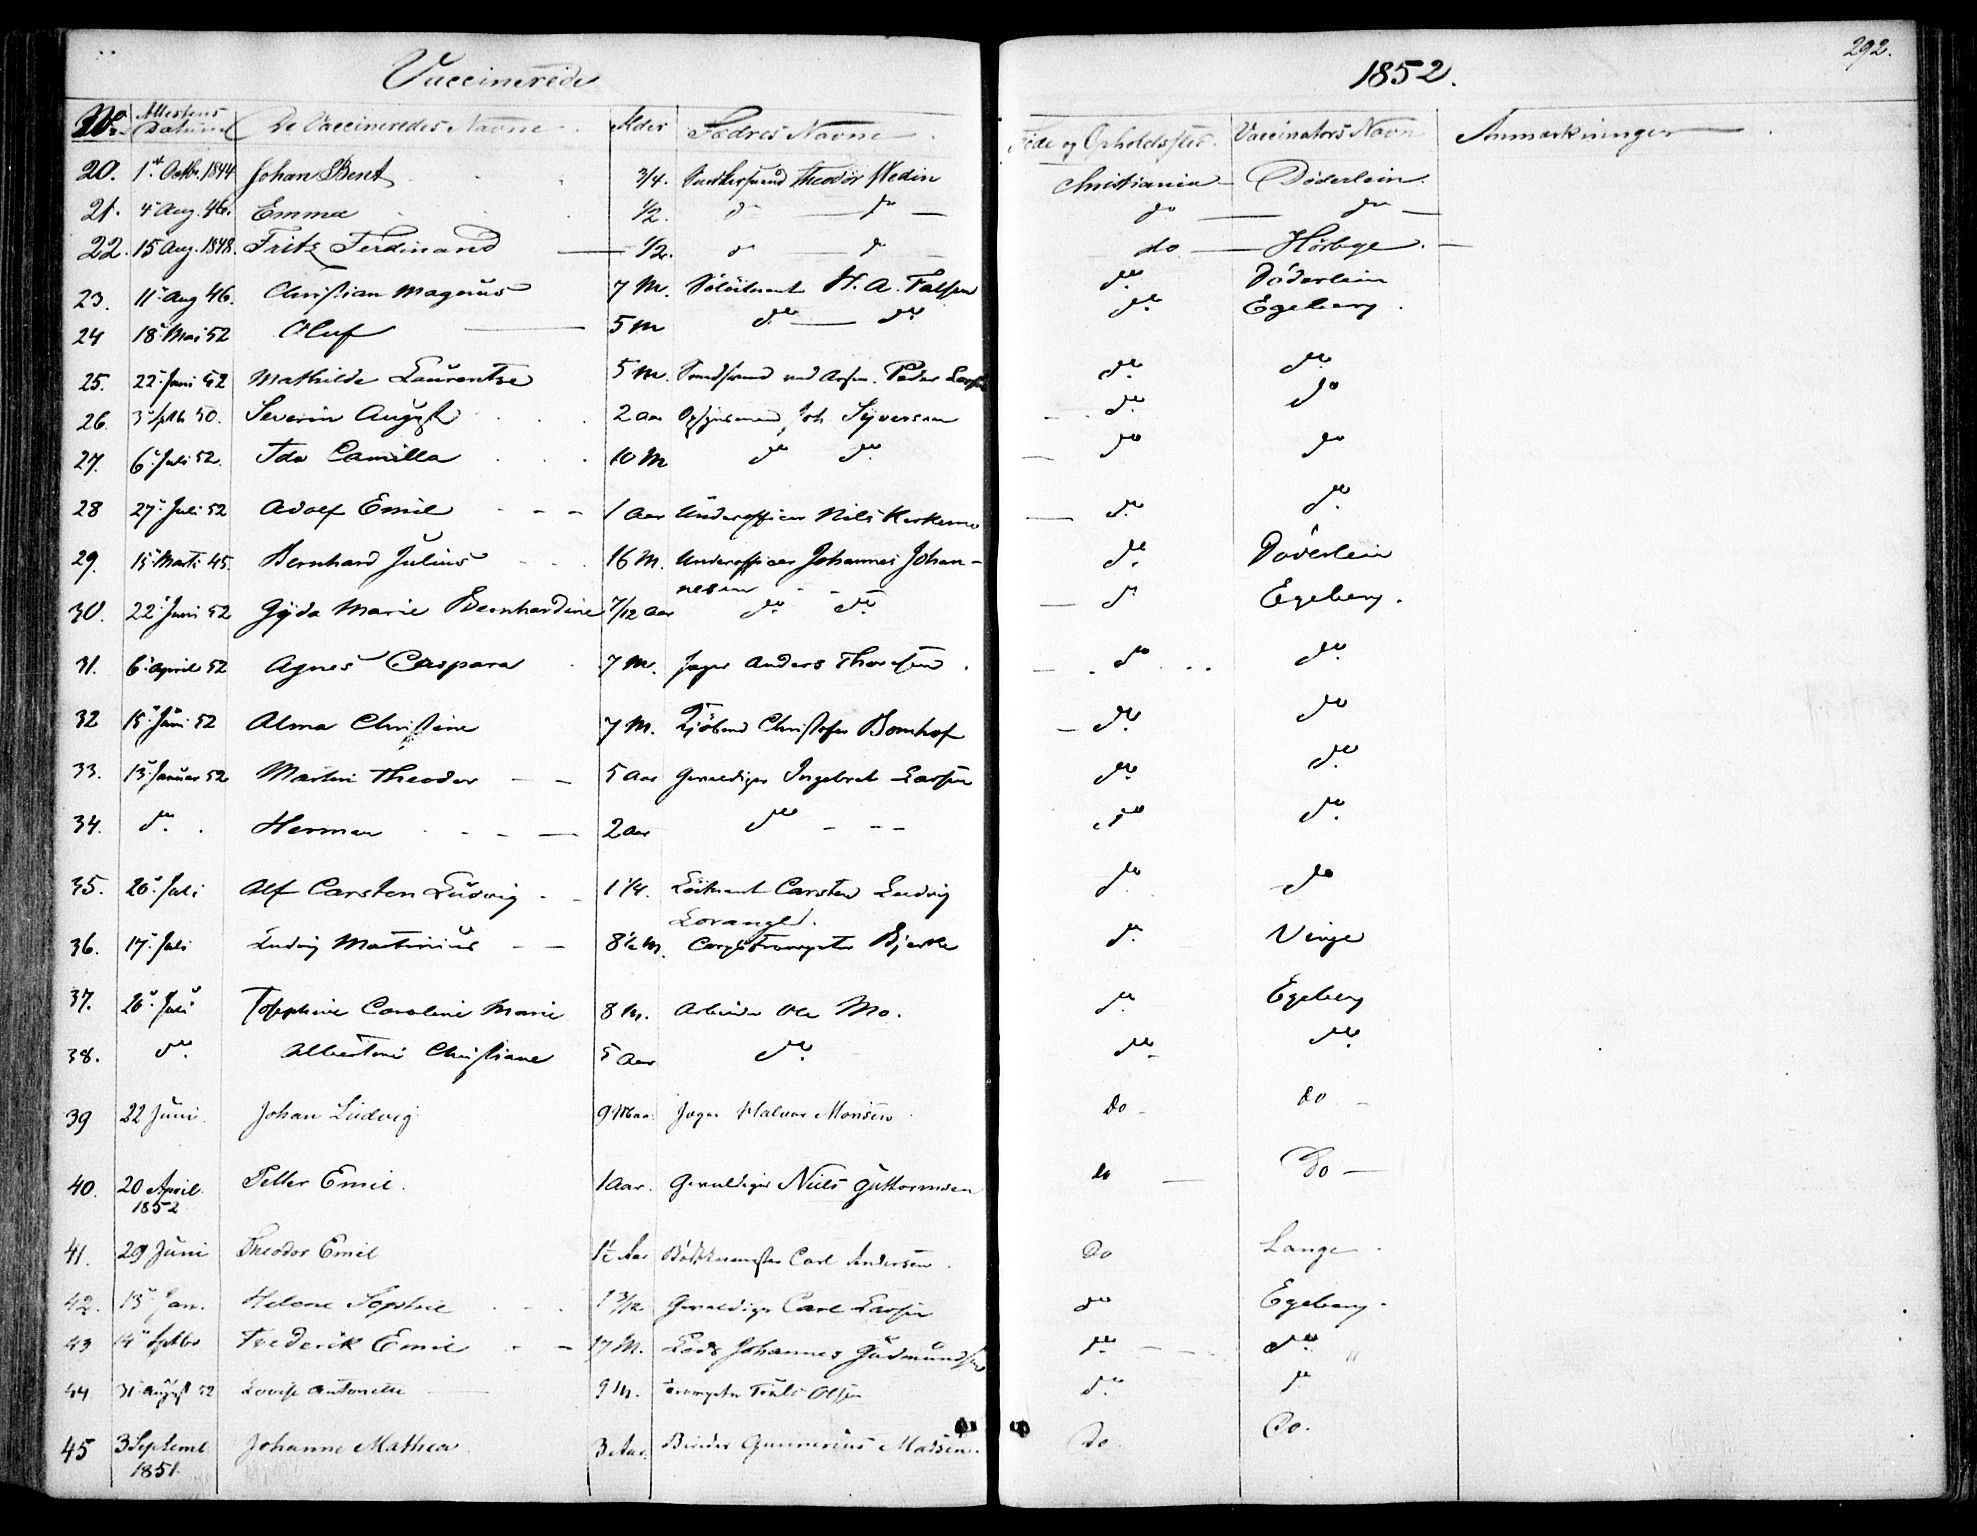 Vaccinerede 1852. 292.
No. Attestens Datum De Vaccineredes Navne Alder Fædres Navne Føde og Opholdssted. Vaccinators Navn Anmærkninger
20. 1st Octbr. 1844 Johan Bent 3/4. Theodor Wedin Christiania Døderlein.
21. 4 Aug. 46. Emma 1/2. do do do do
22. 15 Aug. 1848. Fritz Ferdinand 1/2. do do do Hørbye.
23. 11 Aug 46. Christian Magnus 7 M. H. A. Falsen do Døderlein
24 18 Mai 52 Oluf 5 M do do do Egeberg.
25. 22 Juni 52 Mathilde Laurentze 5 M. Peder Larsen do do
26. 3 Septb 50. Severin August 2 Aar Opsynsmand Joh Syversen do do
27. 6 Juli 52. Ida Camilla 10 M do do do do
28 27 Juli 52 Adolf Emil 1 Aar Underofficer Nils do do
29. 15 Marts 45. Bernhard Julius 16 M. Underofficer Johannes Johan- do Døderlein
nesen
30. 22 Juni 52 Gyda Marie Bernhardine 7/12 Aar do do do Egeberg.
31. 6 April 52 Agnes Caspara 7 M. Jæger Anders Thoresen. do do
32 15 Juni 52 Alma Christine 7 M. Christofer Bomhof do do
33. 13 Januar 52 Martin Theodor 5 Aar Gevaldiger Ingebret Larsen do do
34. do. Herman 2 Aar do do do
35. 20 Juli Alf Carsten Ludvig 1 1/4. Løitnant Carsten Ludvig do do
Lorange.
36. 17 Juli Ludvig Martinius 8 1/2 M. Corpstrompeter Bjerke do Vinge
37. 20 Juli Josephine Caroline Marie 8 M. Arbeider Ole Mo. do Egeberg
38. do. Albertine Christiane 5 Aar do do do
39 22 Juni. Johan Ludvig 9 Maa. Jæger Halvor Monsen do do
40. 20 April Petter Emil. 1 Aar. Gevaldiger Niels Guttormsen do Do
1852
41. 29 Juni Theodor Emil 1 1/2 Aar Carl Andersen. Do Lange
42. 13 Jan. Helene Sophie 1 3/12 Gevaldiger Carl Larsen do Egeberg.
43 14 Septbr Frederik Emil 17 M. Lods Johannes Gudmundsen do do "
44. 31 August 52 Lovise Antonette 9 M. Trompeter Truls Olsen do do
45 3 Septembr Johanne Mathea 3 Aar. Gunnerius Madsen. Do Do.
1851.